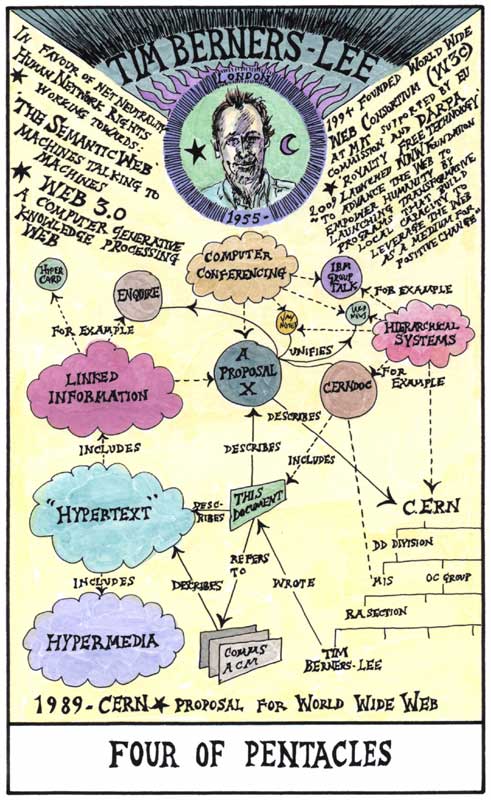 TIM BERNERS-LEE
LONDON
1955-
IN FAVOUR OF NET NEUTRALITY
HUMAN NETWORK RIGHTS
★ WORKING TOWARDS:
'THE SEMANTIC WEB'
MACHINES TALKING TO
MACHINES
★ WEB 3.0
A COMPUTER GENERATIVE
KNOWLEDGE PROCESSING
WEB
1994 FOUNDED WORLD WIDE
WEB CONSORTIUM (W3C)
AT MIT SUPPORTED BY EU
COMMISSION AND DARPA
★ 'ROYALTY FREE TECHNOLOGY'
2009 LAUNCHED WWW FOUNDATION
"TO ADVANCE THE WEB TO
EMPOWER HUMANITY BY
LAUNCHING TRANSFORMATIVE
PROGRAMS THAT BUILD
LOCAL CAPACITY TO
LEVERAGE THE WEB
AS A MEDIUM FOR
POSITIVE CHANGE"
HYPER
CARD
ENQUIRE
COMPUTER
CONFERENCING
IBM
GROUP
TALK
FOR EXAMPLE
VAX
NOTES
UUCP
NEWS
HIERARCHICAL
SYSTEMS
FOR EXAMPLE
UNIFIES
LINKED
INFORMATION
A
PROPOSAL
X
CERNDOC
FOR
EXAMPLE
DESCRIBES
INCLUDES
DESCRIBES
INCLUDES
"HYPERTEXT"
DESC-
RIBES
THIS
DOCUMENT
CERN
DD DIVISION
INCLUDES
DESCRIBES
REFERS
TO
WROTE
MIS
OC GROUP
RA SECTION
HYPERMEDIA
COMMS
ACM
TIM
BERNERS-LEE
1989 - CERN ★ PROPOSAL FOR WORLD WIDE WEB
FOUR OF PENTACLES